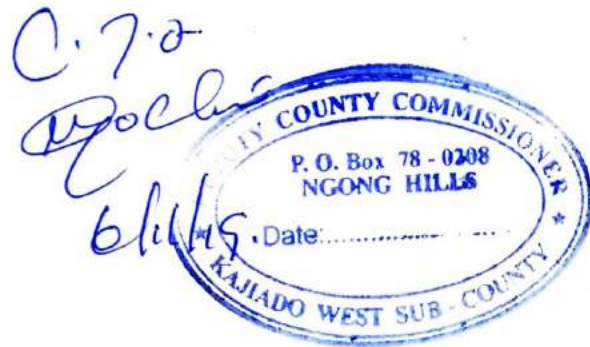 C.T.O
COUNTY COMMISSIONER
P. O. Box 78 - 0208
NGONG HILLS
6/11/19.
Date:
KAJIADO WEST SUB - COUNTY